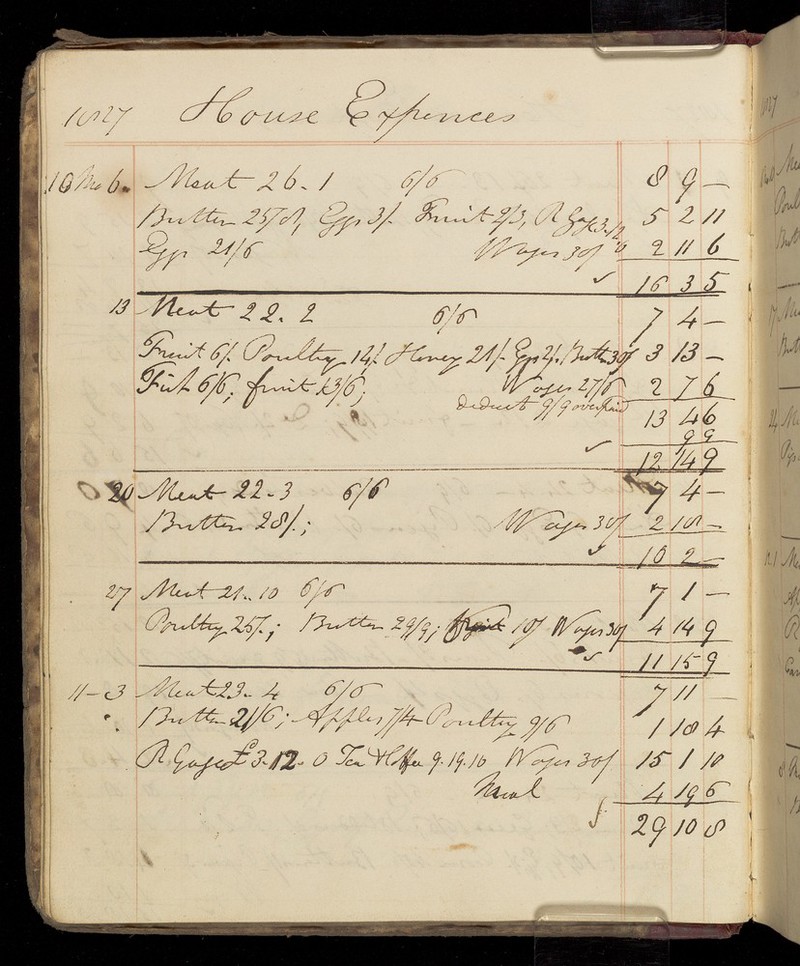 1827 House Expences
10 Mo 6. Meat 26.1 6/6 8 9 —
Butter 25/8, Eggs 3/. Fruit 2/3, R Gage 3.12.0 5 2 11
Eggs 21/6 Wages 30/ 2 11 6
16 3 5
13 Meat 22.2 6/6 7 4 —
Fruit 6/. Poultry 14/. Honey 21/. Eggs 2/. Butter 30/ 3 13 —
Fish 6/6; fruit 13/6; Wages 27/6 2 7 6
deduct 9/9 overpaid 13 4 6
9 9
12 14 9
20 Meat 22.3 6/6 7 4 —
Butter 28/.; Wages 30/ 2 18 —
10 2 —
27 Meat 21.10 6/6 7 1 —
Poultry 25/.; Butter 29/9; 10/ Wages 30/ 4 14 9
11 15 9
11 – 3 Meat 23.4 6/6 7 11 —
Butter 21/6; Apples 7/4 Poultry 9/6 1 18 4
R Gage £3.12.0 Tea & Coffee 9.19.10 Wages 30/ 15 1 10
Meal 4 19 6
29 10 8